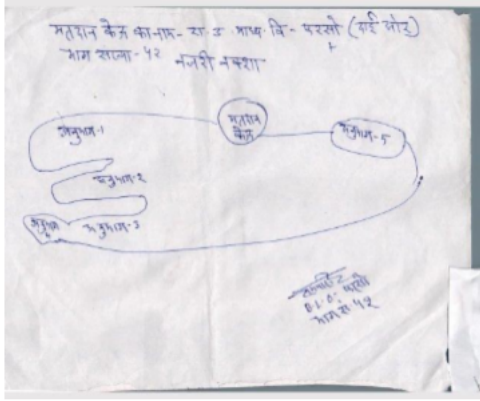 मतदान केन्द्र का नाम- रा. उ. माध्य. वि - परसो (दाई ओर)
भाग संख्या- 42 नजरी नक्शा
मतदान केन्द्र
अनुभाग-1
अनुभाग-5
अनुभाग-2
अनुभाग
अनुभाग-3
B.L.O. परसो
भाग सं. 42